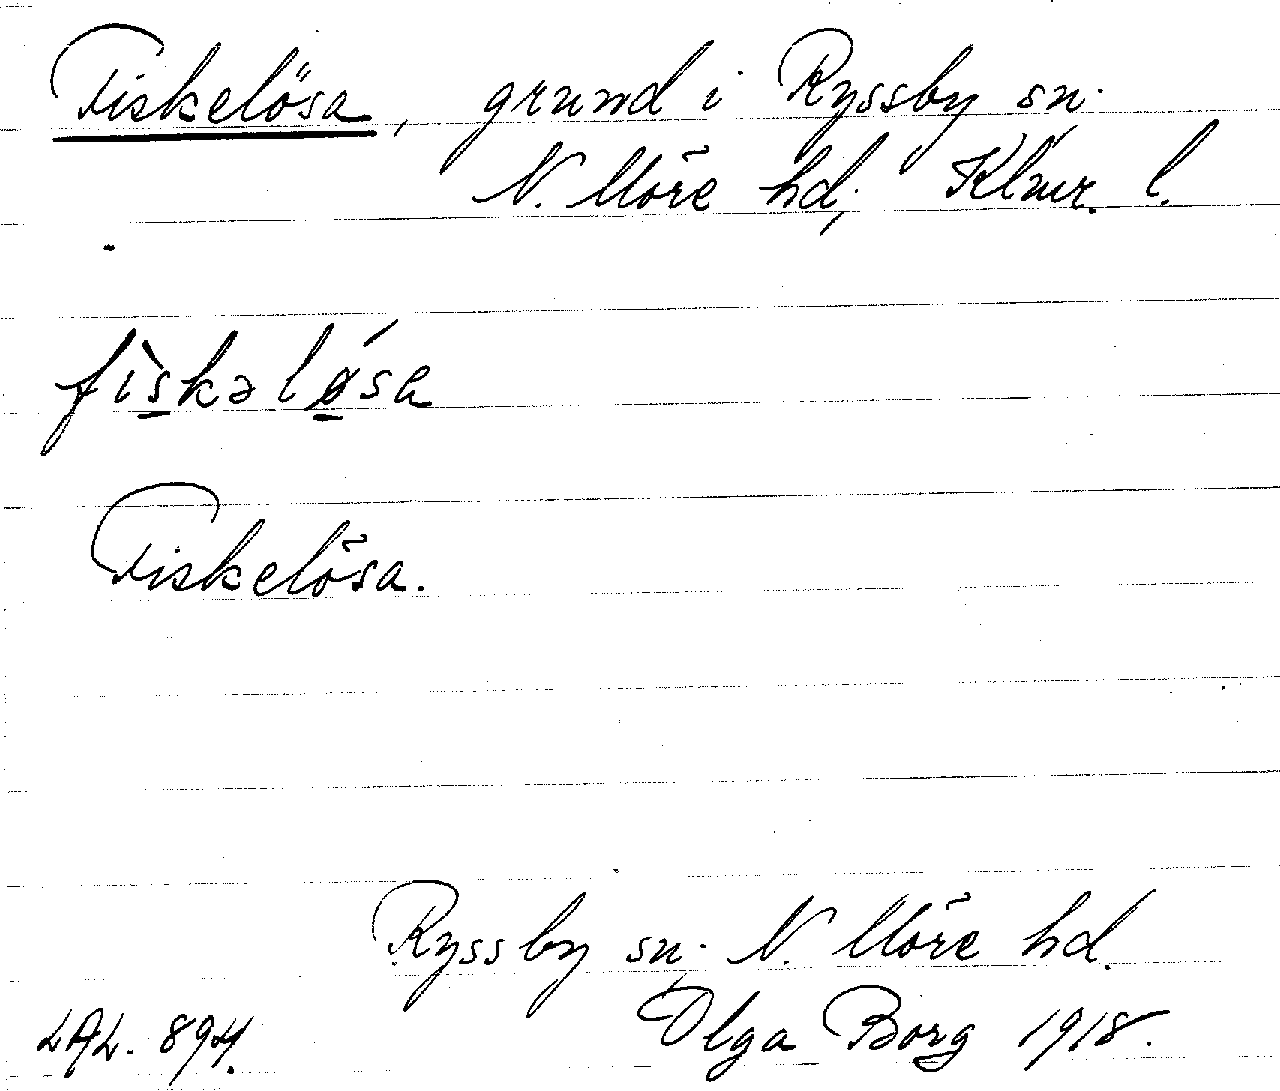 Fiskelösa, grund i Ryssby sn.
N. Möre hd, Klmr. l.
fìskəlǿsa
Fiskelösa.
Ryssby sn. N. Möre hd.
LAL. 894. Olga Borg 1918.